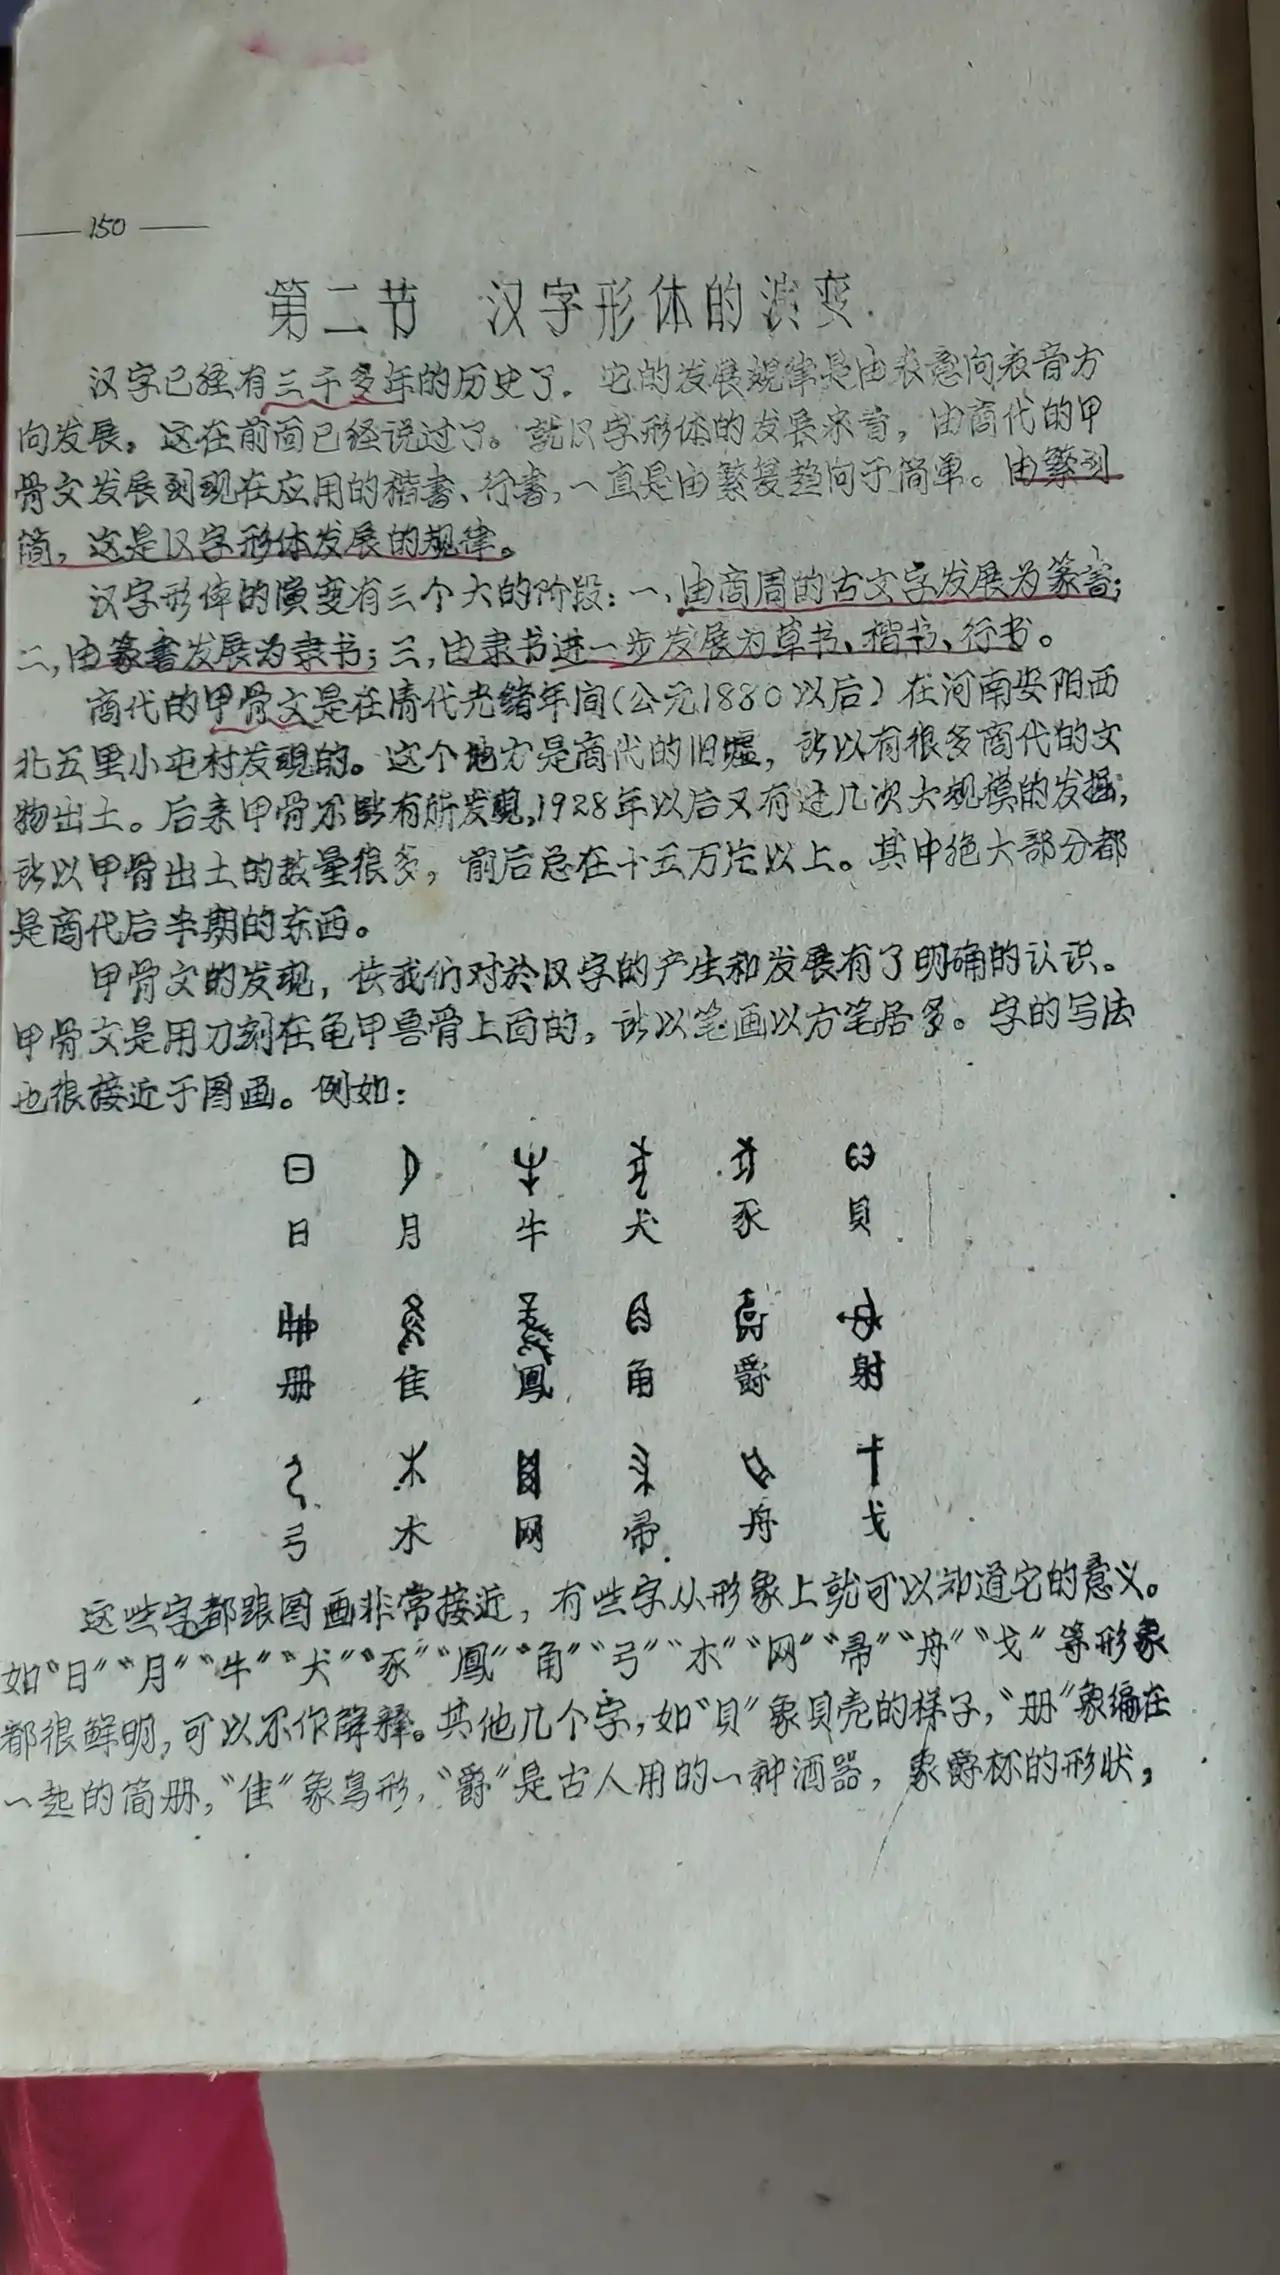 150
第二节 汉字形体的演变
汉字已经有三千多年的历史了．它的发展规律是由表意向表音方
向发展，这在前面已经说过了。就汉字形体的发展来看，由商代的甲
骨文发展到现在应用的楷書、行書，一直是由繁复趋向于简单。由繁到
简，这是汉字形体发展的规律。
汉字形体的演变有三个大的阶段：一、由商周的古文字发展为篆書；
二，由篆書发展为隶书；三，由隶书进一步发展为草书、楷书、行书。
商代的甲骨文是在清代光绪年间（公元1880以后）在河南安阳西
北五里小屯村发现的。这个地方是商代的旧墟，所以有很多商代的文
物出土。后来甲骨不断有所发現，1928年以后又有过几次大规模的发掘，
所以甲骨出土的数量很多，前后总在十五万片以上。其中绝大部分都
是商代后半期的东西。
甲骨文的发现，使我们对於汉字的产生和发展有了明确的认识。
甲骨文是用刀刻在龟甲兽骨上面的，所以笔画以方笔居多。字的写法
也很接近于图画。例如：
日 月 牛 犬 豕 貝
册 隹 鳳 角 爵 射
弓 木 网 帚 舟 戈
这些字都跟图画非常接近，有些字从形象上就可以知道它的意义。
如“日”“月”“牛”“犬”“豕”“鳳”“角”“弓”“木”“网”“帚”“舟”“戈”等形象
都很鲜明，可以不作解释。其他几个字，如“貝”象貝壳的样子，“册”象编在
一起的简册，“隹”象鸟形，“爵”是古人用的一种酒器，象爵杯的形状，